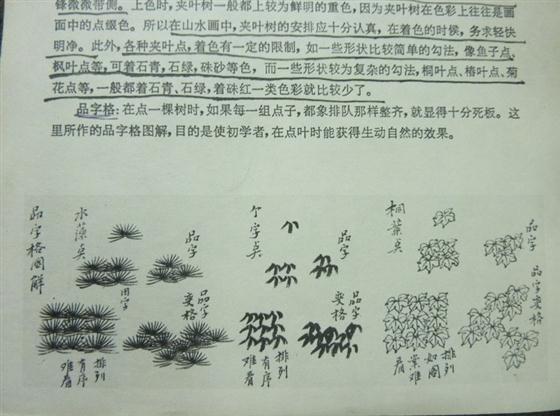 锋微微带侧。上色时，夹叶树一般都上较为鲜明的重色，因为夹叶树在色彩上往往是画
面中的点缀色。所以在山水画中，夹叶树的安排应十分认真，在着色的时侯，务求轻快
明净。此外，各种夹叶点，着色有一定的限制，如一些形状比较简单的勾法，像鱼子点、
枫叶点等，可着石青，石绿，硃砂等色，而一些形状较为复杂的勾法，桐叶点、椿叶点、菊
花点等，一般都着石青、石绿，着硃红一类色彩就比较少了。
品字格：在点一棵树时，如果每一组点子，都象排队那样整齐，就显得十分死板。这
里所作的品字格图解，目的是使初学者，在点叶时能获得生动自然的效果。
品字格图解
水藻点
品字
用字
品字
变格
排列
有序
难看
个字点
品字
品字
变格
排列
有序
难看
桐叶点
品字
品字变格
排列
如图
案难
看